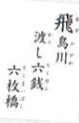 飛鳥川
渡し六銭
六枚橋